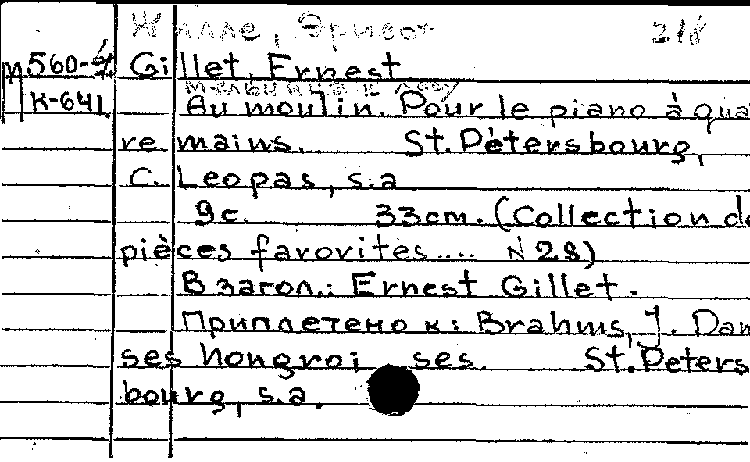 Жилле, Эрнест 218
п560-4 Gillet, Ernest
К-641 Au moulin. Pour le piano à qua
re mains. St. Pétersbourg,
C. Leopas, s.a
9c. 33cm. (Collection de
pièces favovites.... N 28)
В загол.: Ernest Gillet.
Приплетено к: Brahms, J. Dan
ses hongroi ses. St. Peters
bourg, s.a.